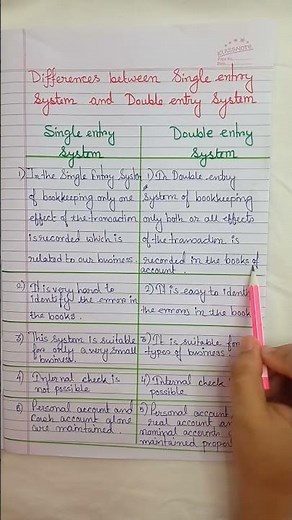 CLASSMATE
Differences between Single entry
System and Double entry System
Single entry
System
1) In the Single Entry System
of bookkeeping only one
effect of the transaction
is recorded which is
related to our business.
2) It is very hard to
identify the errors in
the books.
3) This system is suitable
for only a very small
business.
4) Internal check is
not possible
5) Personal account and
Cash account alone
are maintained.
Double entry
System
1) In Double entry
System of bookkeeping
only both or all effects
of the transaction is
recorded in the books of
account.
2) It is easy to
the errors in the book
3) It is suitable for
types of business
4) Internal check
possible
5) Personal account
real account
nominal accounts
maintained